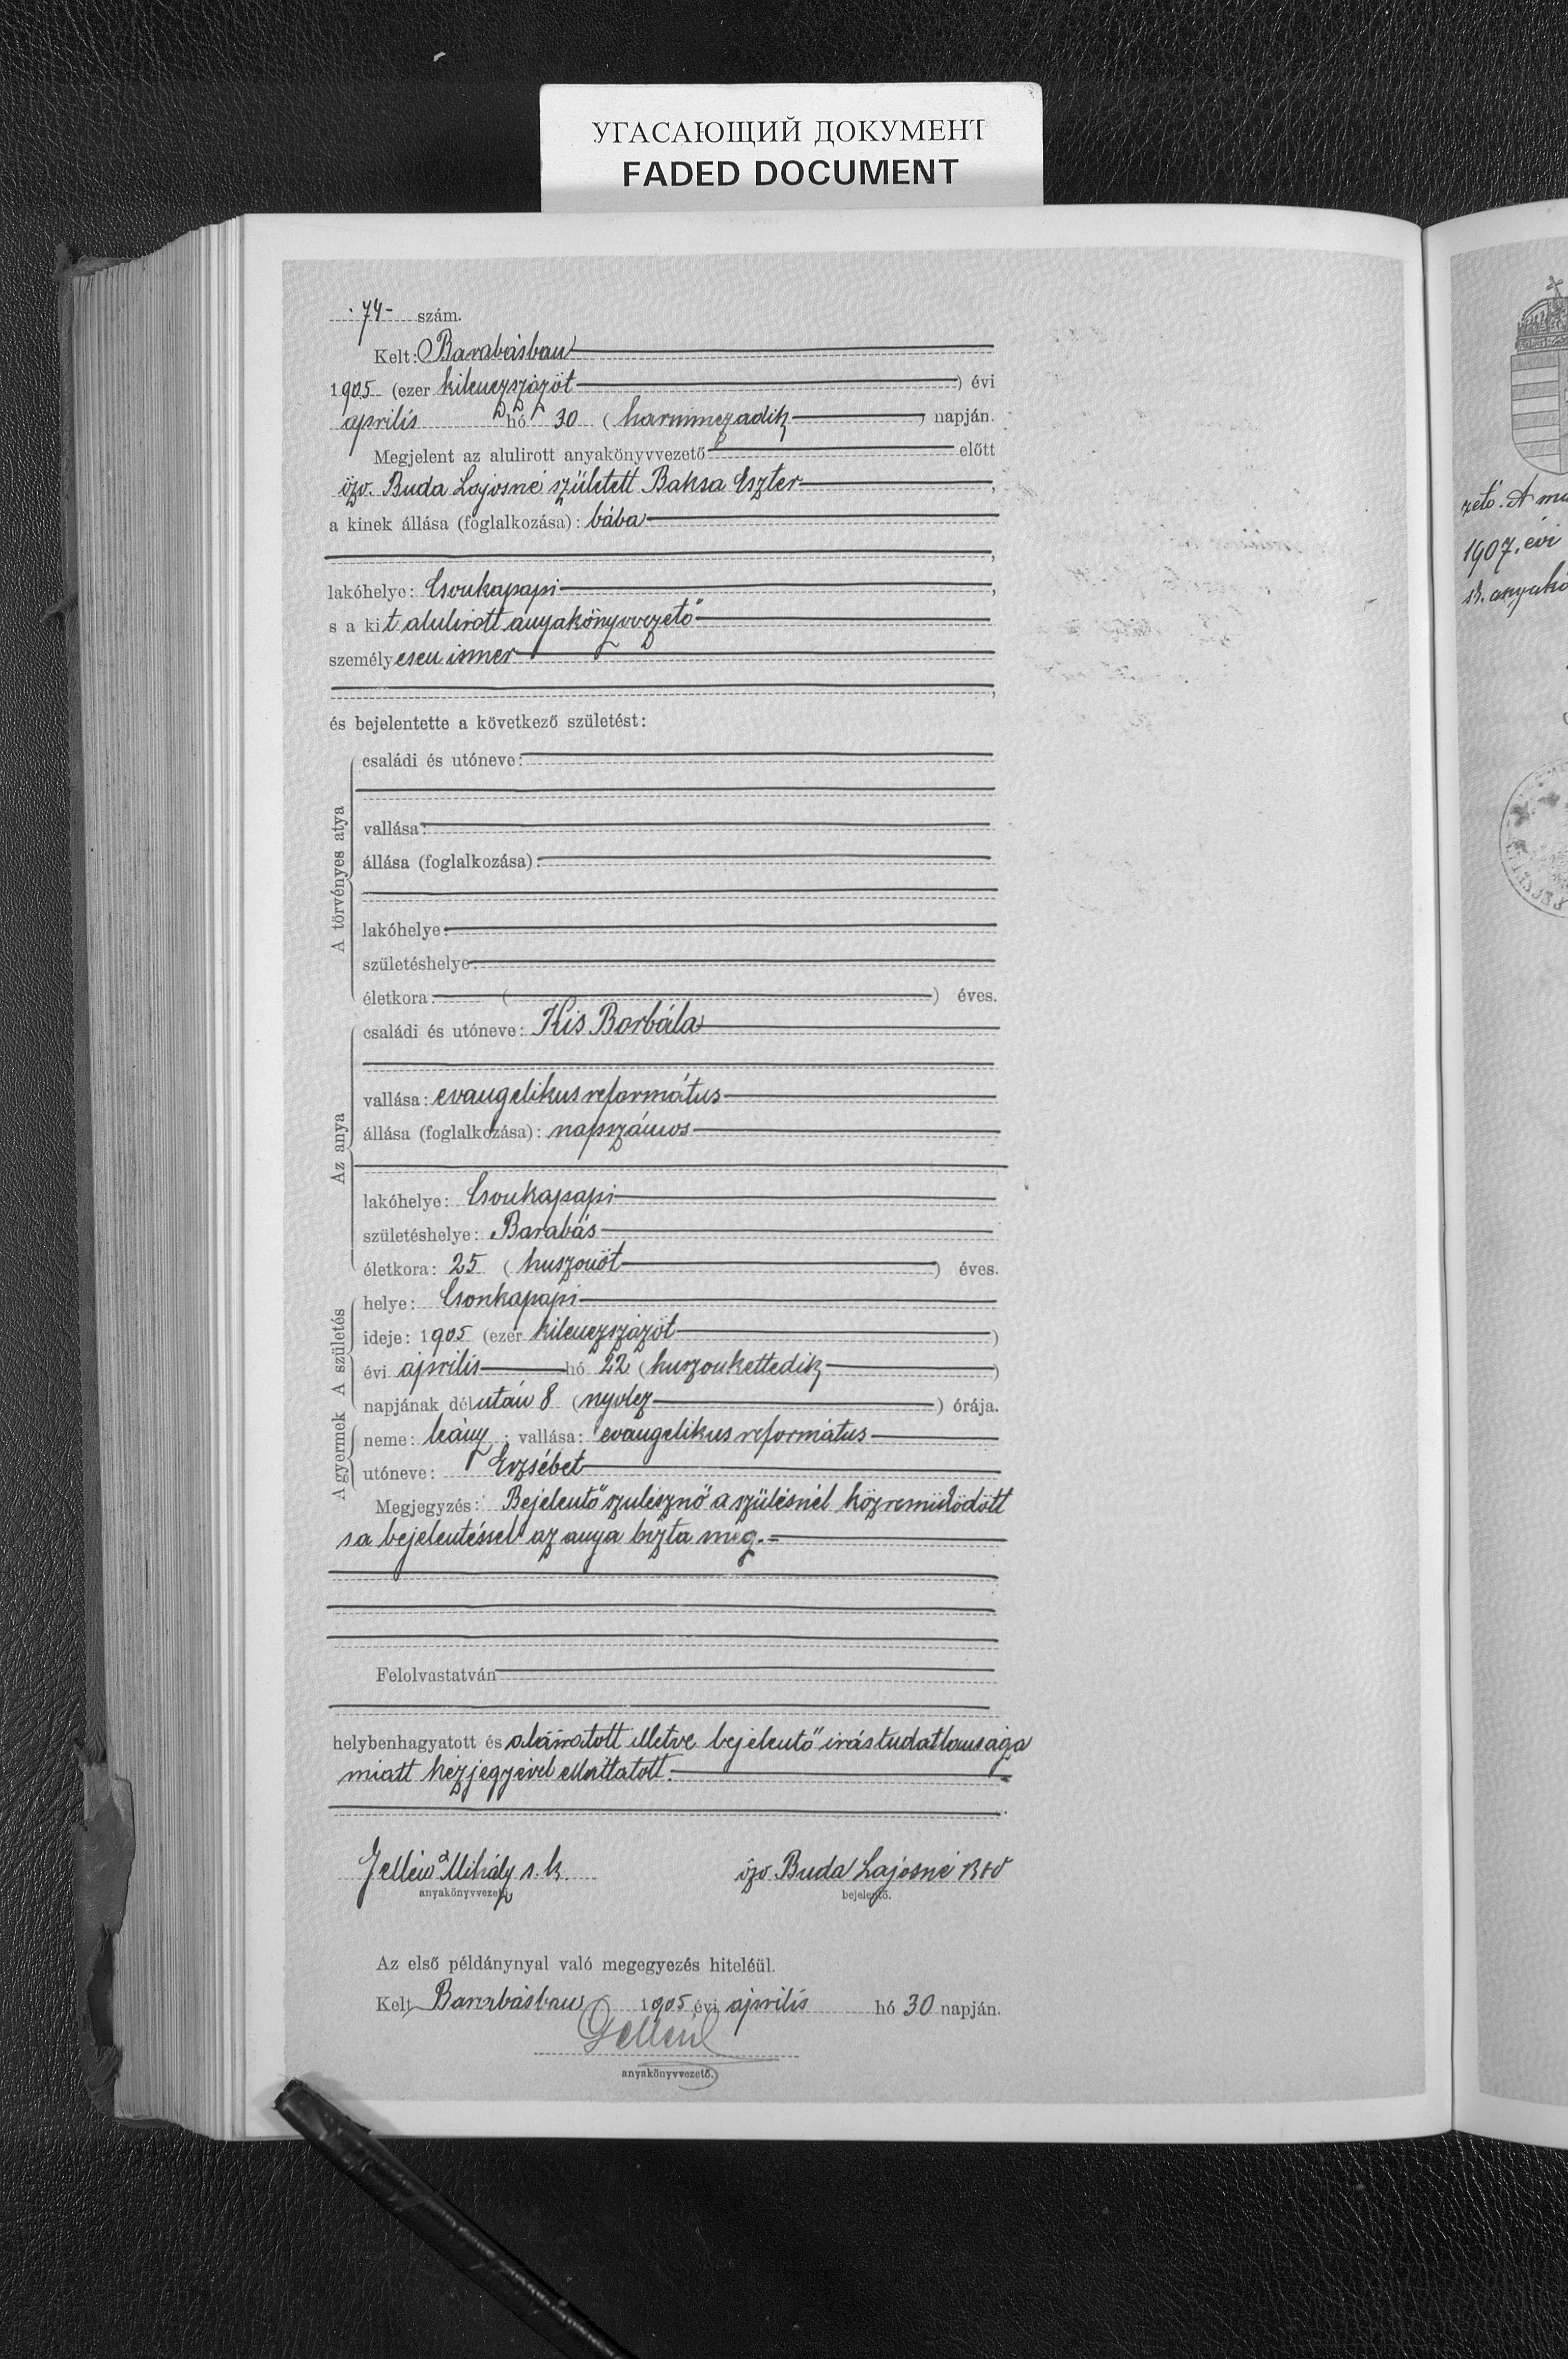 УГАСАЮЩИЙ ДОКУМЕНТ
FADED DOCUMENT
74 szám.
Kelt: Barabásban
1905 (ezer kilenczszázöt) évi
április hó 30 (harminczadik) napján.
Megjelent az alulirott anyakönyvvezető előtt
özv. Buda Lajosné született Baksa Eszter,
a kinek állása (foglalkozása): bába
lakóhelye: Csonkapapi,
s a kit alulirott anyakönyvvezető
személyesen ismer
és bejelentette a következő születést:
A törvényes atya
családi és utóneve:
vallása:
állása (foglalkozása):
lakóhelye:
születéshelye:
életkora: ( ) éves.
Az anya
családi és utóneve: Kis Borbála
vallása: evangelikus református
állása (foglalkozása): napszámos
lakóhelye: Csonkapapi
születéshelye: Barabás
életkora: 25 (huszonöt) éves.
A születés
helye: Csonkapapi
ideje: 1905 (ezer kilenczszázöt)
évi április hó 22 (huszonkettedik)
napjának délután 8 (nyolcz) órája.
A gyermek
neme: leány; vallása: evangelikus református
utóneve: Erzsébet
Megjegyzés: Bejelentő szülésznő a szülésnél közreműködött
s a bejelentéssel az anya bizta meg.
Felolvastatván
helybenhagyatott és aláiratott illetve bejelentő irástudatlansága
miatt kézjegyével elláttatott.
Mihály s. k. özv. Buda Lajosné
anyakönyvvezető bejelentő.
Az első példánynyal való megegyezés hiteléül.
Kelt Barabásban 1905 évi április hó 30 napján.
anyakönyvvezető.
1907. évi